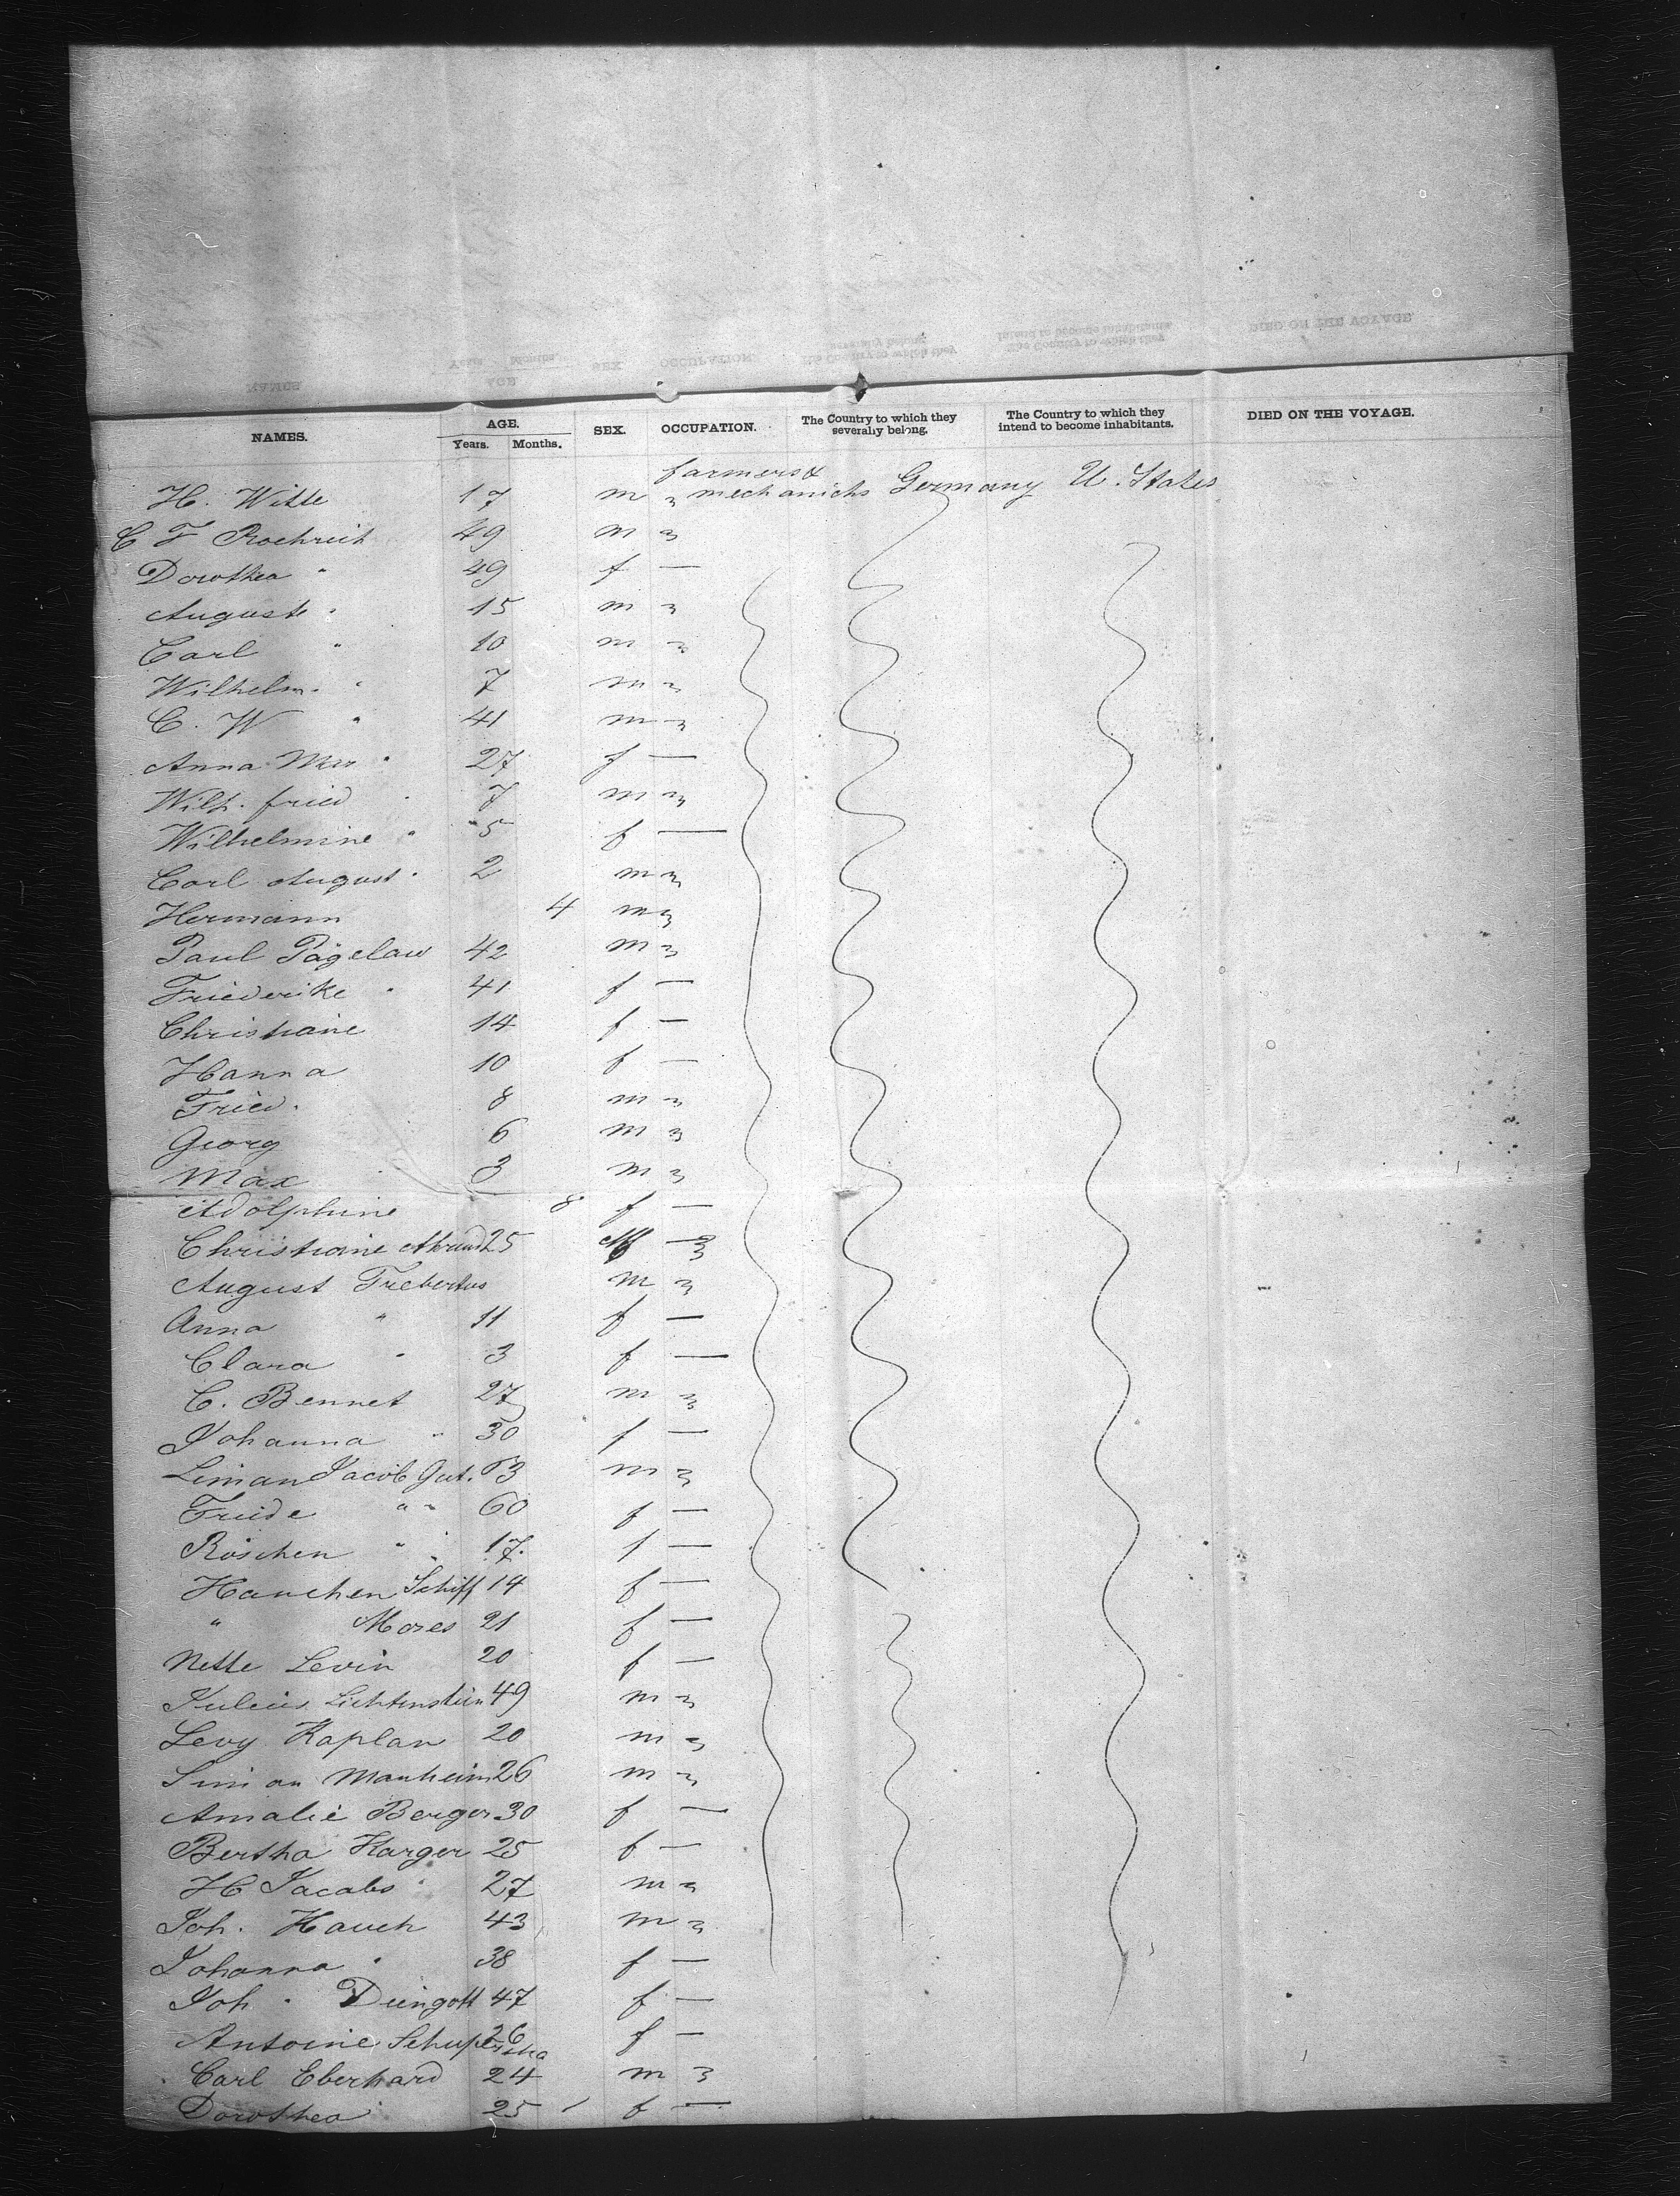 NAMES. AGE. SEX. OCCUPATION. The Country to which they severally belong. The Country to which they intend to become inhabitants. DIED ON THE VOYAGE.
Years. Months.
farmers &
H. Witte 17 m " mechanichs Germany U. States
C F Roehreich 49 m "
Dorothea " 49 f —
August " 15 m "
Carl " 10 m "
Wilhelm. " 7 m "
C. W " 41 m "
Anna Mar " 27 f —
Wilh. fried " 7 m "
Wilhelmine " 5 f —
Carl August " 2 m "
Hermann 4 m "
Paul Pägelow 42 m "
Friederike " 41 f —
Christiane 14 f —
Hanna 10 f —
Fried. 8 m "
Georg 6 m "
Max 3 m "
Adolphine 8 f —
Christiane 25
August m "
Anna " 11 f —
Clara " 3 f —
C. Bennet 27 m "
Johanna " 30 f —
Jacob Gut. 63 m "
Friede " " 60 f —
Röschen " 17. f —
Hanchen Schiff 14 f —
" Moses 21 f —
Nette Levin 20 f —
Julius Lichtenstein 49 m "
Levy Kaplan 20 m "
Simon Manheim 26 m "
Amalie Berger 30 f —
Bertha Harger 25 f —
H Jacobs 27 m "
Joh. Hauch 43 m "
Johanna " 38 f —
Joh. 47 f —
Antoine 26 f —
Carl Eberhard 24 m "
Dorothea 25 f —